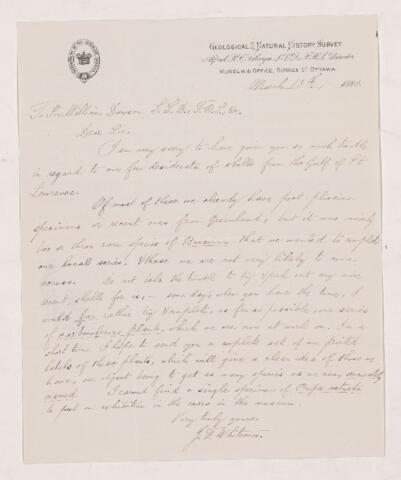 GEOLOGICAL & NATURAL HISTORY SURVEY
Alfred R. C. Selwyn, LL.D., F.R.S., Director
MUSEUM & OFFICE, SUSSEX ST OTTAWA
March 13th, 1886.
To Sir William Dawson LL.D., F.R.S., &c.
Dear Sir,
I am very sorry to have given you so much trouble
in regard to our few desiderata of shells from the Gulf of St
Lawrence.
Of most of these we already have post pliocene
specimens or recent ones from Greenland, but it was mainly
two or three rare species of Buccinum that we wanted to complete
our local series. These we are not very likely to come
across.
Do not take the trouble to try & pick out any more
recent shells for us, – some day, when you have the time, I
would far rather try & complete, as far as possible, our series
of carboniferous plants, which we are now at work on. In a
short time I hope to send you a complete set of our printed
labels of these plants, which will give a clear idea of those we
have, our object being to get as many species as we can, accurately
named. I cannot find a single specimen of Pupa vetusta
to put on exhibition in the cases in the museum.
Very truly yours,
J. F. Whiteaves.